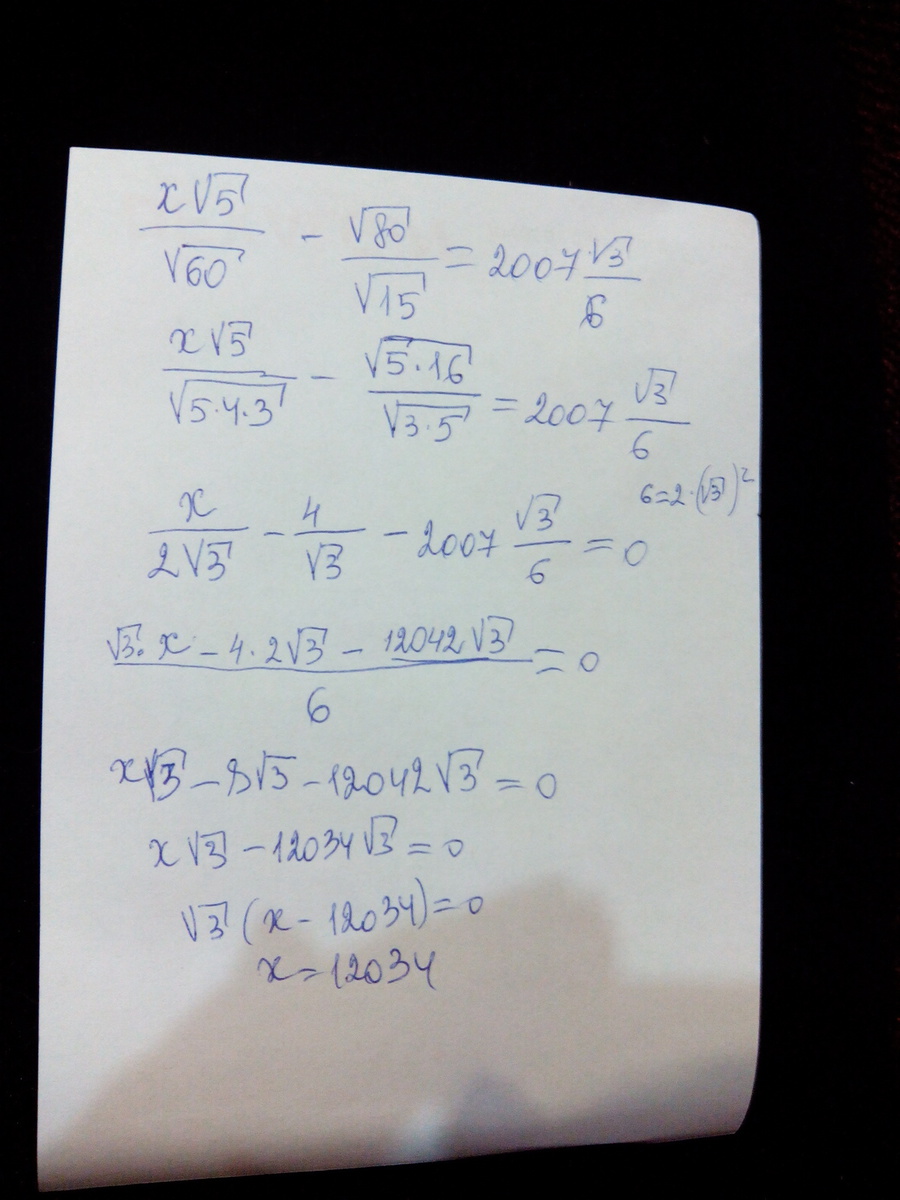 x√5/√60 - √80/√15 = 2007 √3/6
x√5/√5·4·3 - √5·16/√3·5 = 2007 √3/6
6=2·(√3)²
x/2√3 - 4/√3 - 2007 √3/6 = 0
√3·x - 4·2√3 - 12042√3/6 = 0
x√3 - 8√3 - 12042√3 = 0
x√3 - 12034√3 = 0
√3(x - 12034) = 0
x = 12034